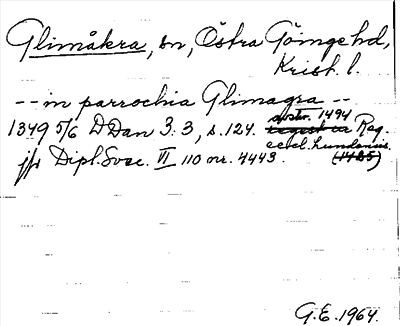 Glimåkra, sn, Östra Göinge hd,
Krist. l.
-- in parrochia Glimagra --
avskr. 1494
1349 5/6 D Dan 3:3, s. 124. Reg.
eccl. Lundensis
jfr Dipl. Svec. VI 110 onr. 4443. (1425)
G.E. 1964.